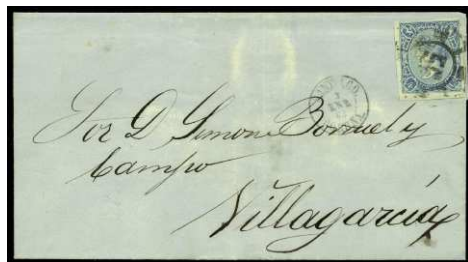 Sor D. Simon Borruel y
Campo
Villagarcía
ENE